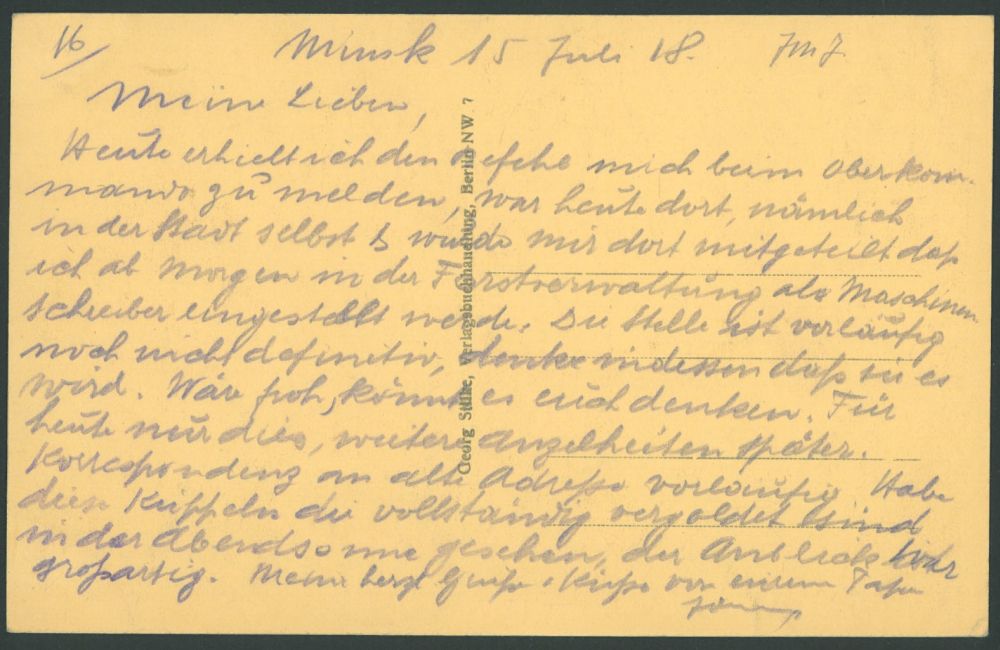 16
Minsk 15 Juli 18.
Meine Lieben,
Heute erhielt ich den Befehl mich beim Oberkom-
mando zu melden, war heute dort, nämlich
in der Stadt selbst & wurde mir dort mitgeteilt daß
ich ab Morgen in der Forstverwaltung als Maschinen-
schreiber eingestellt werde. Die Stelle ist vorläufig
noch nicht definitiv, denke indessen daß sie es
wird. Wäre froh, könnt es euch denken. Für
heute nur dies, weitere Einzelheiten später.
Korrespondenz an alte Adresse vorläufig. Habe
diese Kuppeln die vollständig vergoldet sind
in der Abendsonne gesehen, der Anblick war
großartig. Meine herzl Grüße & Küße von eurem
Georg Stilke, Verlagsbuchhandlung, Berlin NW 7